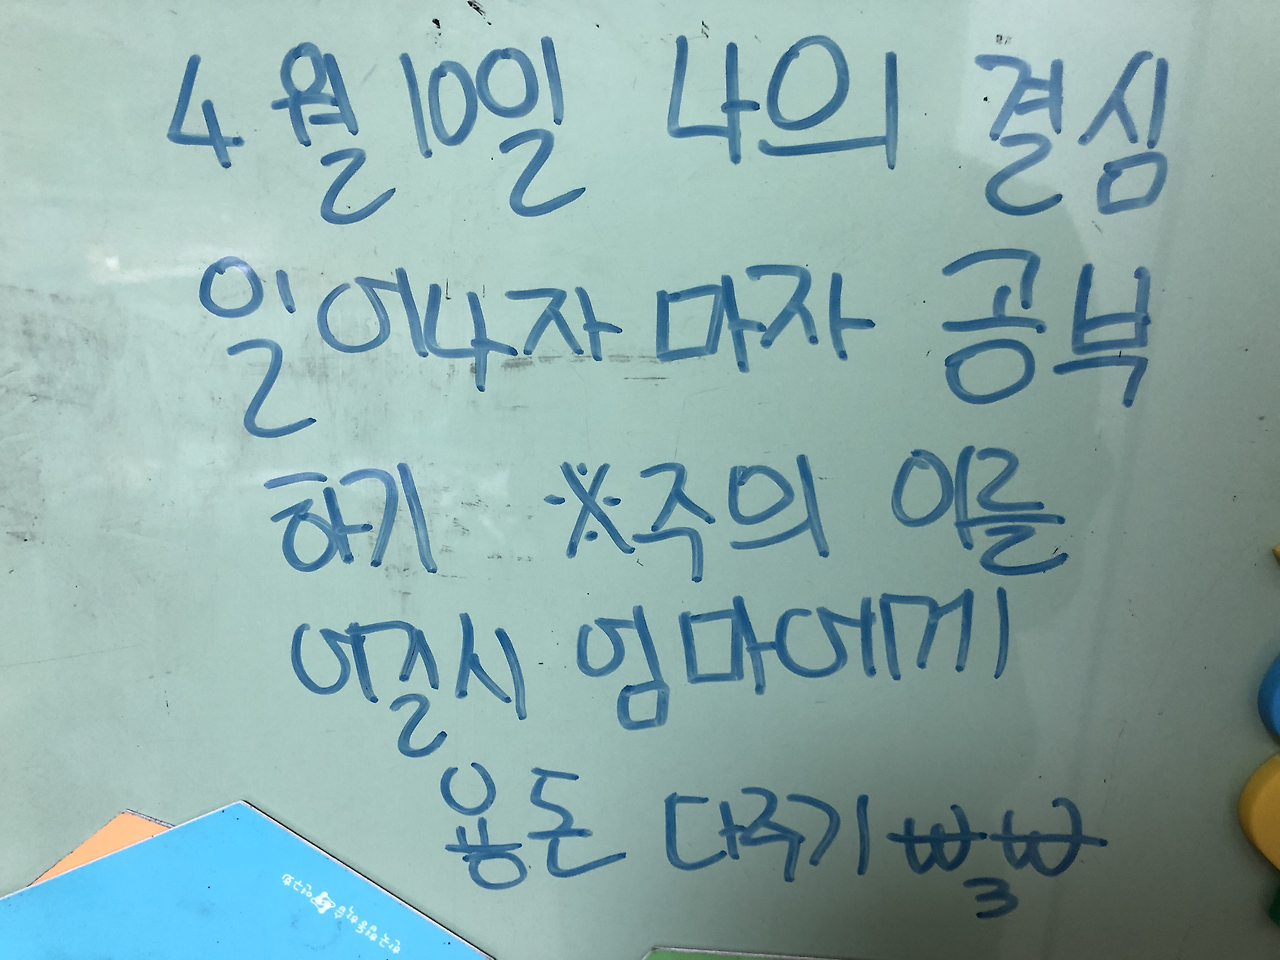 4월10일 나의 결심
일어나자 마자 공부
하기 ※주의 이를
어길시 엄마에게
용돈 다주기 ₩3₩